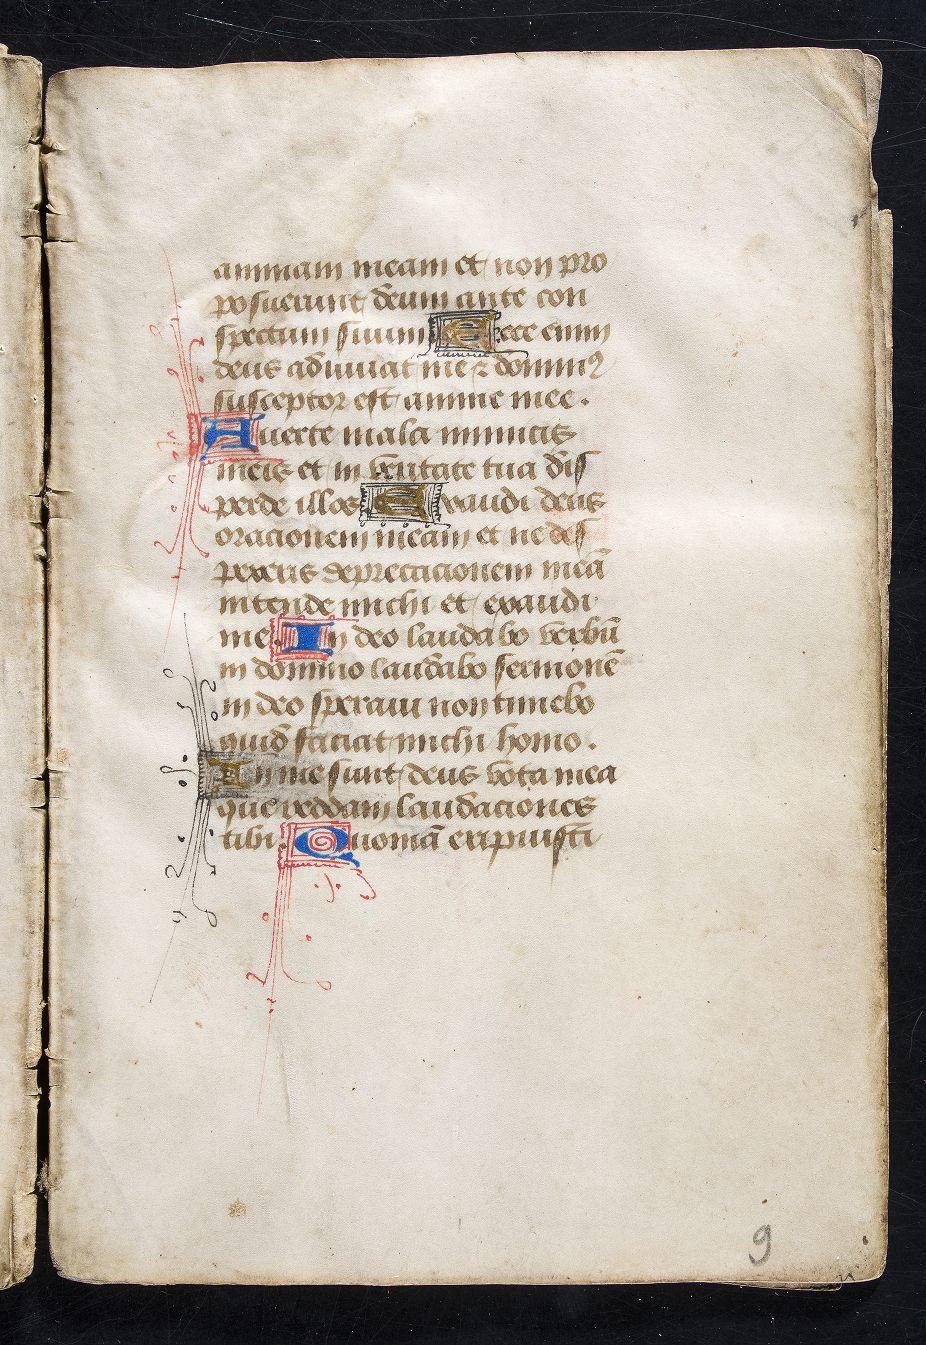 animam meam et non pro
posuerunt deum ante con
spectum suum Ecce enim
deus adiuuat me ⁊ dominꝰ
susceptor est anime mee .
Auerte mala inimicis
meis et in ueritate tua dis
perde illos Exaudi deus
oracionem meam et ne des
pexeris deprecacionem meā
intende michi et exaudi
me . In deo laudabo verbū
in domino laudabo sermonē
in deo speraui non timebo
quid faciat michi homo .
In me sunt deus vota mea
que reddam laudaciones
tibi . Quoniā eripuisti
9